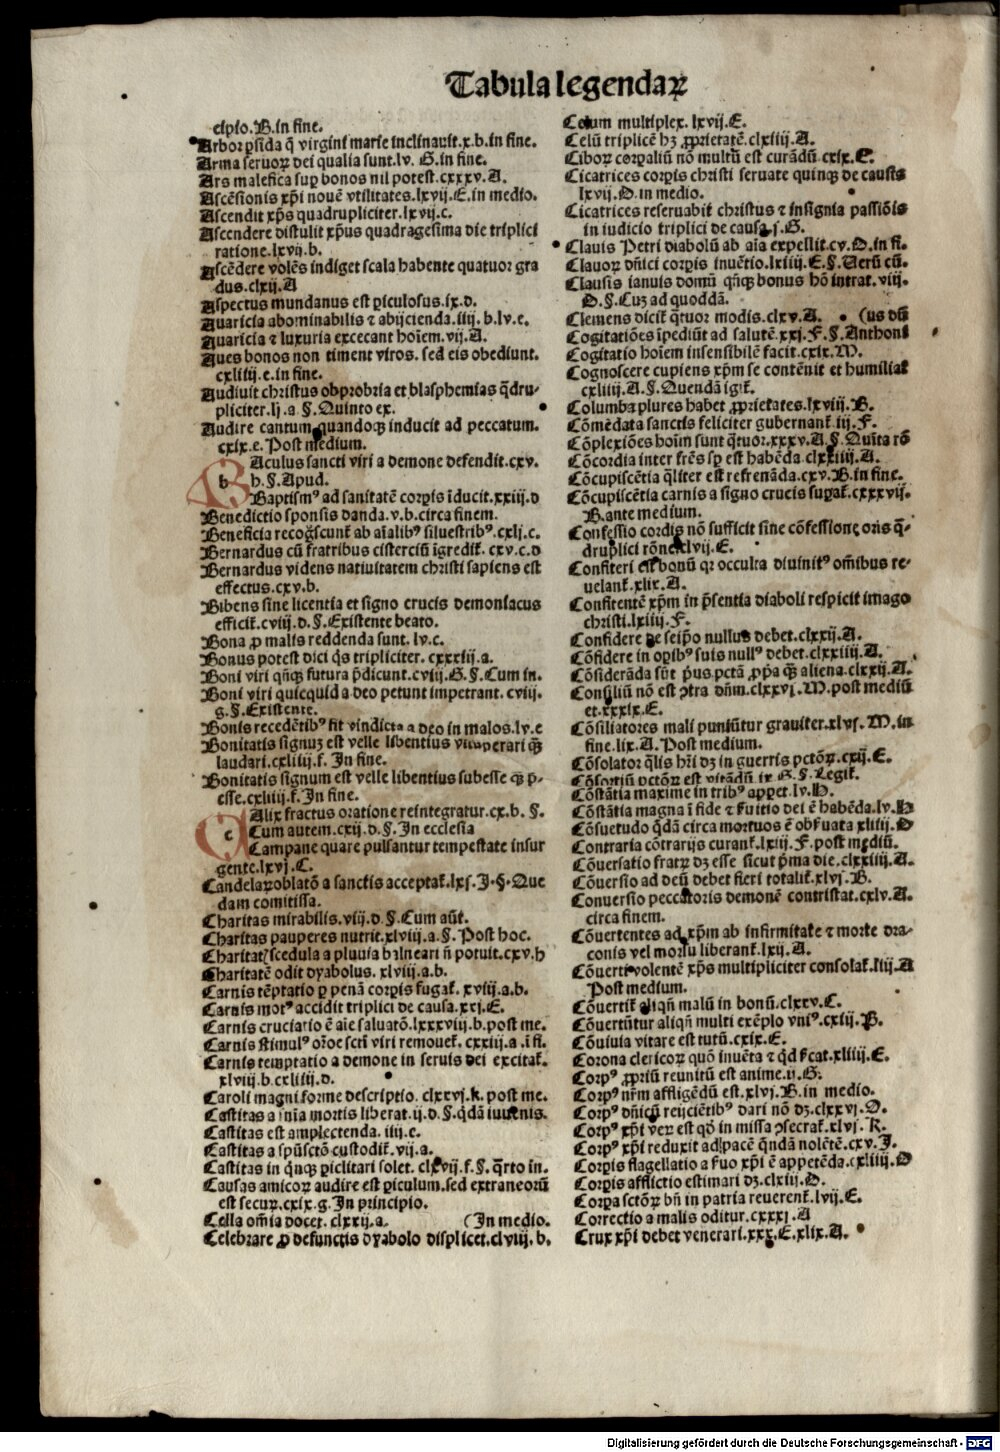 Tabula legendaꝝ
cipio.B.in fine.
Arbor ꝑsida q̄ virgini marie inclinauit.x.b.in fine.
Arma seruoꝝ dei qualia sunt.lv. G.in fine.
Ars malefica suꝑ bonos nil potest.cxxxv.A.
Ascēsionis xp̄i nouē vtilitates.lxvij.E.in medio.
Ascendit xp̄s quadrupliciter.lxvij.c.
Ascendere distulit xp̄us quadragesima die triplici
ratione.lxvij.b.
Ascēdere volēs indiget scala habente quatuor gra
dus.clxij.A
Aspectus mundanus est ꝑiculosus.ix.d.
Auaricia abominabilis ⁊ abijcienda.iiij.b.lv.e.
Auaricia ⁊ luxuria excecant hoīem.vij.A.
Aues bonos non timent viros. sed eis obediunt.
cxliiij.e.in fine.
Audiuit christus obprobria et blasphemias q̄dru-
pliciter.lj.a §.Quinto ex.
Audire cantum quandoqꝫ inducit ad peccatum.
cxix.e.Post medium.
b
Baculus sancti viri a demone defendit.cxv.
h.§.Apud.
Baptismꝰ ad sanitatē corꝑis īducit.xxiij.d
Benedictio sponsis danda.v.b.circa finem.
Beneficia recog̃scunt̃ ab aīalibꝰ siluestribꝰ.cxlj.c.
Bernardus cū fratribus cisterciū īgredit̃. cxv.c.d
Bernardus videns natiuitatem christi sapiens est
effectus.cxv.b.
Bibens sine licentia et signo crucis demoniacus
efficit̃.cviij.d.§.Existente beato.
Bona ꝓ malis reddenda sunt. lv.c.
Bonus potest dici q̄s tripliciter. cxxxiij.a.
Boni viri qn̄qꝫ futura p̄dicunt.cviij.G.§.Cum in.
Boni viri quicquid a deo petunt impetrant. cviij.
g.§.Existente.
Bonis recedētibꝰ fit vindicta a deo in malos.lv.e
Bonitatis signuꝫ est velle libentius vituperari q̄ꝫ
laudari.cxliiij.f. In fine.
Bonitatis signum est velle libentius subesse q̄ꝫ p̄-
esse.cxliiij.f.In fine.
c
Calix fractus oratione reintegratur.cx.b. §.
Cum autem.cxij.d.§.In ecclesia
Campane quare pulsantur tempestate insur
gente.lxvj.C.
Candelaꝝ oblatō a sanctis acceptat̃.lxj.I.§.Que
dam comitissa.
Charitas mirabilis.viij.d.§.Cum aūt.
Charitas pauperes nutrit.xlviij.a.§.Post hoc.
Charitatꝭ scedula a pluuia balneari ñ potuit.cxv.h
Charitatē odit dyabolus. xlviij.a.b.
Carnis tēptatio ꝑ penā corꝑis fugat̃. xviij.a.b.
Carnis motꝰ accidit triplici de causa.xxj.E.
Carnis cruciatio ē aīe saluatō.lxxxviij.b.post me.
Carnis stimulꝰ oīoe sctī viri remouet̃. cxxiij.a.ī fi.
Carnis temptatio a demone in seruis dei excitat̃.
xlviij.b.cxliiij.d.
Caroli magni forme descriptio. clxxvj.k. post me.
Castitas a īn̄ia mortis liberat.ij.d.§.q̄dā iuuenis.
Castitas est amplectenda. iiij.c.
Castitas a spūsctō custodit̃.vij.a.
Castitas in q̄nqꝫ ꝑiclitari solet. clxvij.f.§.q̄rto in.
Causas amicoꝝ audire est ꝑiculum.sed extraneoꝝ
est secuꝝ.cxix.g.In principio.
Cella om̄ia docet. clxxij.a. (In medio.
Celebrare ꝓ defunctis dyabolo displicet.clviij.b.
Celum multiplex. lxvij.E.
Celū triplicē hꝫ ꝓprietatē.clxiiij.A.
Ciboꝝ corꝑaliū nō multū est curādū.cxix.E.
Cicatrices corꝑis christi seruate quinqꝫ de causis
lxvij.D.in medio.
Cicatrices reseruabit christus ⁊ insignia passiōis
in iudicio triplici de causa.j.G.
Clauis Petri diabolū ab aīa expellit.cv.D.in fi.
Clauoꝝ dn̄ici corꝑis inuētio.lxiiij.E.§.Uerū cū.
Clausis ianuis domū qn̄qꝫ bonus hō intrat.viij.
D.§.Cuꝫ ad quoddā.
Clemens dicit̃ q̄tuor modis.clxv.A. (us dū
Cogitatiōes īpediūt ad salutē.xxj.F.§.Anthoni
Cogitatio hoīem insensibilē facit.cxix.M.
Cognoscere cupiens xp̄m se contēnit et humiliat
cxliiij.A.§.Quendā igit̃.
Columba plures habet ꝓprietates.lxviij.B.
Cōmēdata sanctis feliciter gubernant̃.iij.F.
Cōplexiōes hoīm sunt q̄tuor.xxxv.A.§.Quīta rō
Cōcordia inter fr̄es sꝑ est habēda.clxxiiij.A.
Cōcupiscētia q̄liter est refrenāda.cxv.B.in fine.
Cōcupiscētia carnis a signo crucis suꝑat̃.cxxxvij.
B.ante medium.
Confessio cordis nō sufficit sine cōfessione oris q̄-
druplici rōne.clvij.E.
Confiteri est bonū qꝛ occulta diuinitꝰ om̄ibus re-
uelant̃.xlix.A.
Confitentē xp̄m in p̄sentia diaboli respicit imago
christi.lxiiij.F.
Confidere de seip̄o nullus debet.clxxij.A.
Cōfidere in oꝑibꝰ suis nullꝰ debet.clxxiiij.A.
Cōsiderāda sūt p̄us pctā ꝓp̄a q̄ꝫ aliena.clxxij.A.
Consiliū nō est ꝯtra dn̄m.clxxvj.M.post mediū
et.xxxix.E.
Cōsiliatores mali puniūtur grauiter.xlvj.M.in
fine.lix.A.Post medium.
Cōsolator q̄lis hr̄i dꝫ in guerris pctōꝝ.cxij.E.
Cōsortiū pctōꝝ est vitādū.ix.G.§.Legit̃.
Cōstātia maxime in tribꝰ apꝑet.lv.H.
Cōstātia magna ī fide ⁊ ẜuitio dei ē habēda.lv.H
Cōsuetudo q̄dā circa mortuos ē obẜuata xliiij.D
Contraria cōtrarijs curant̃.lxiij.F.post mediū.
Cōuersatio fratꝝ dꝫ esse sicut p̄ma die.clxxiiij.A.
Cōuersio ad deū debet fieri totalit̃.xlvj.B.
Conuersio peccatoris demonē contristat.cxlv.A.
circa finem.
Cōuertentes ad xp̄m ab infirmitate ⁊ morte dra-
conis vel morsu liberant̃.lxij.A.
Cōuerti volentē xp̄s multipliciter consolat̃.liij.A
Post medium.
Cōuertit̃ aliqn̄ malū in bonū.clxxv.C.
Cōuertūtur aliqn̄ multi exēplo vniꝰ.cxiij.B.
Cōuiuia vitare est tutū.cxix.E.
Corona clericoꝝ quō inuēta ⁊ q̄d ẜcat.xliiij.E.
Corpꝰ ꝓpriū reunitū est anime.ij.G.
Corpꝰ nr̄m affligēdū est.xlvj.B.in medio.
Corpꝰ dn̄icū reijciētibꝰ dari nō dꝫ.clxxvj.O.
Corpꝰ xp̄i veꝝ est qd̄ in missa ꝯsecrat̃.xlvj.K.
Corpꝰ xp̄i reduxit ad pacē q̄ndā nolētē.cxv.I.
Corꝑis flagellatio a ẜuo xp̄i ē appetēda.cxliiij.D
Corꝑis afflictio estimari dꝫ.cxliij.D.
Corꝑa sctōꝝ bn̄ in patria reuerent̃.lvij.E.
Correctio a malis oditur.cxxxj.A
Crux xp̄i debet venerari.xxx.E.xlix.A.
Digitalisierung gefördert durch die Deutsche Forschungsgemeinschaft - DFG